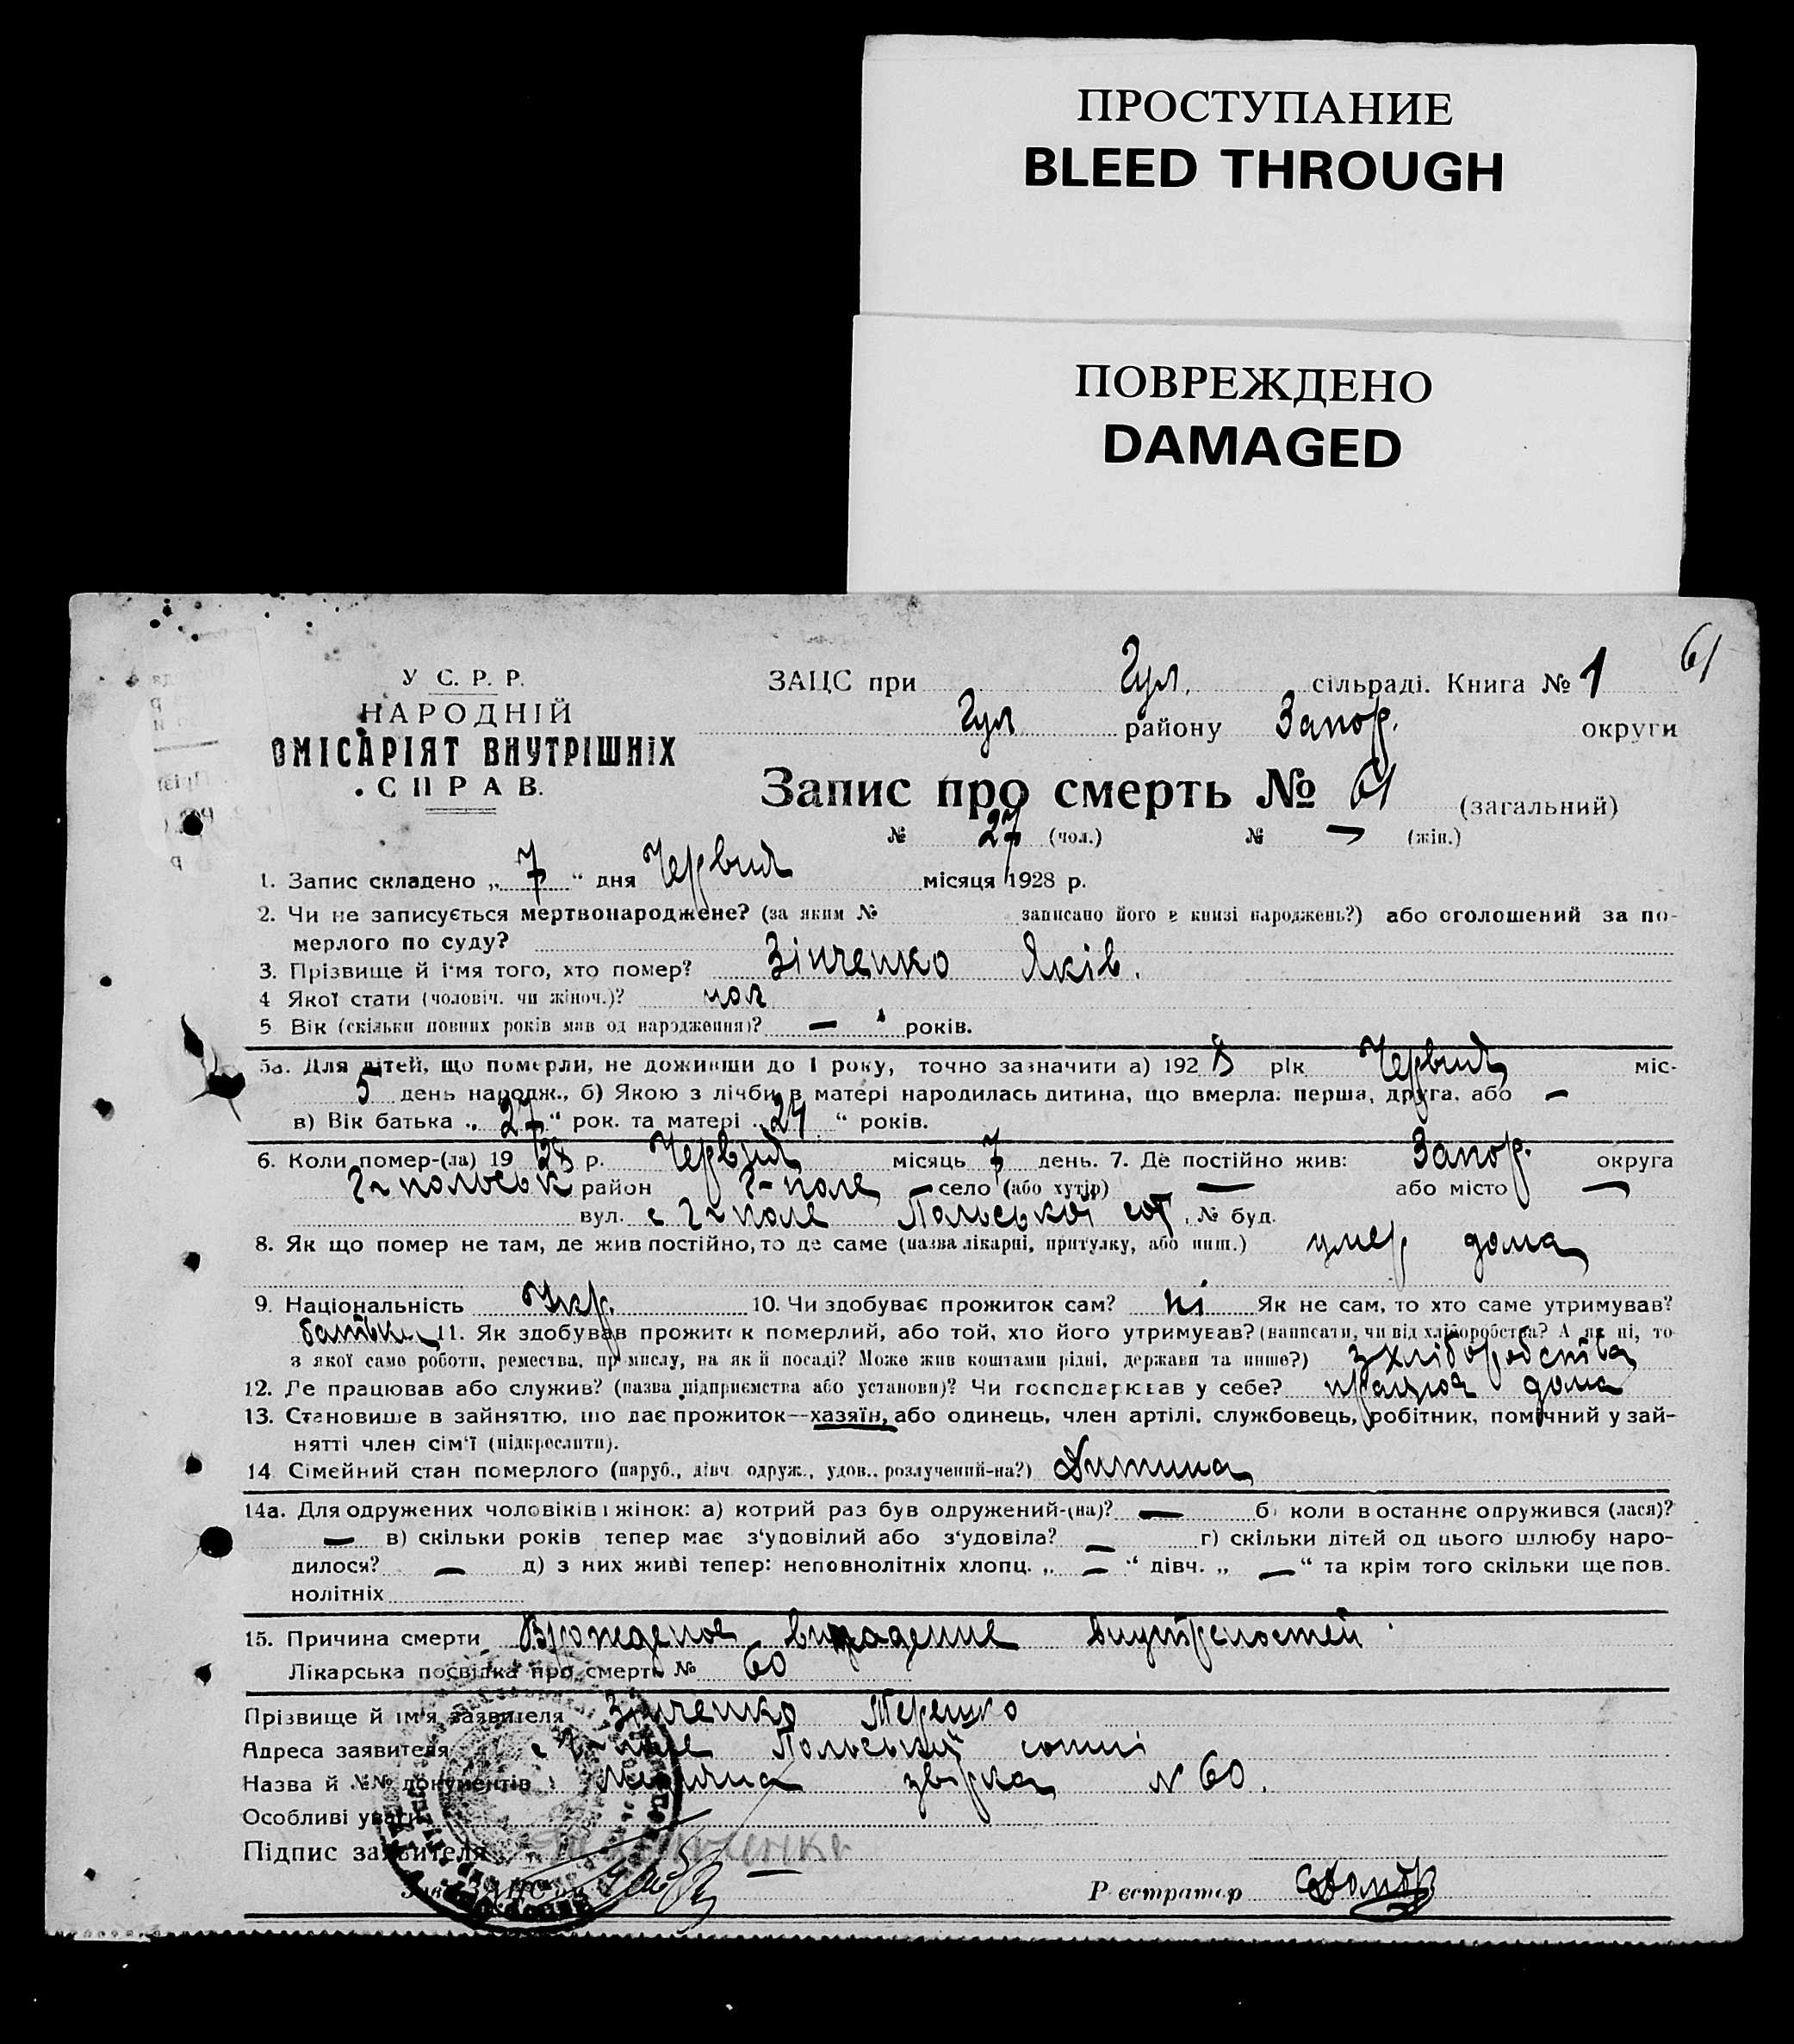 ПРОСТУПАНИЕ
BLEED THROUGH
ПОВРЕЖДЕНО
DAMAGED
61
У С. Р. Р.
НАРОДНІЙ
ОМІСАРІЯТ ВНУТРІШНІХ
СПРАВ.
ЗАЦС при Гул. сільраді. Книга № 1
Гул району Запор. округи
Запис про смерть № 61 (загальний)
№ 27 (чол.) № — (жін.)
1. Запис складено „ 7 “ дня Червня місяця 1928 р.
2. Чи не записується мертвонароджене? (за яким № записано його в книзі народжень?) або оголошений за по-
мерлого по суду?
3. Прізвище й ім'я того, хто помер? Зінченко Яків.
4 Якої стати (чоловіч. чи жіноч.)? чол
5. Вік (скільки повних років мав од народження)? — років.
5а. Для дітей, що померли, не доживши до 1 року, точно зазначити а) 192 8 рік Червня міс-
5 день народж., б) Якою з лічби в матері народилась дитина, що вмерла: перша, друга, або —
в) Вік батька „ 27 “ рок. та матері „ 24 “ років.
6. Коли помер-(ла) 19 28 р. Червня місяць 7 день. 7. Де постійно жив: Запор. округа
Г-польськ район Г-поле село (або хутір) — або місто —
вул. с Г-поле Польської сот, № буд.
8. Як що помер не там, де жив постійно, то де саме (назва лікарні, притулку, або инш.) умер дома
9. Національність Укр. 10. Чи здобуває прожиток сам? ні Як не сам, то хто саме утримував?
батьки 11. Як здобував прожиток померлий, або той, хто його утримував? (написати, чи від хліборобства? А як ні, то
з якої саме роботи, ремества, промислу, на якій посаді? Може жив коштами рідні, держави та инше?) з хліборобства
12. Де працював або служив? (назва підприємства або установи)? Чи господарював у себе? працюв дома
13. Становище в зайняттю, що дає прожиток—хазяїн, або одинець, член артілі, службовець, робітник, помічний у зай-
нятті член сім'ї (підкреслити).
14 Сімейний стан померлого (паруб., дівч. одруж., удов., розлучений-на?) Дитина
14а. Для одружених чоловіків і жінок: а) котрий раз був одружений-(на)? — б) коли в останнє одружився (лася)?
— в) скільки років тепер має з'удовілий або з'удовіла? — г) скільки дітей од цього шлюбу наро-
дилося? — д) з них живі тепер: неповнолітніх хлопц. „ — “ дівч. „ — “ та крім того скільки ще пов.
нолітніх
15. Причина смерти Врожденое випадение внутреностей
Лікарська посвідка про смерть № 60
Прізвище й ім'я заявителя Зінченко Терешко
Адреса заявителя с Г-поле Польський сотні
Назва й №№ документів звірка № 60.
Особливі уваги
Підпис заявителя
Зав. ЗАЦС'ом
Реєстратор